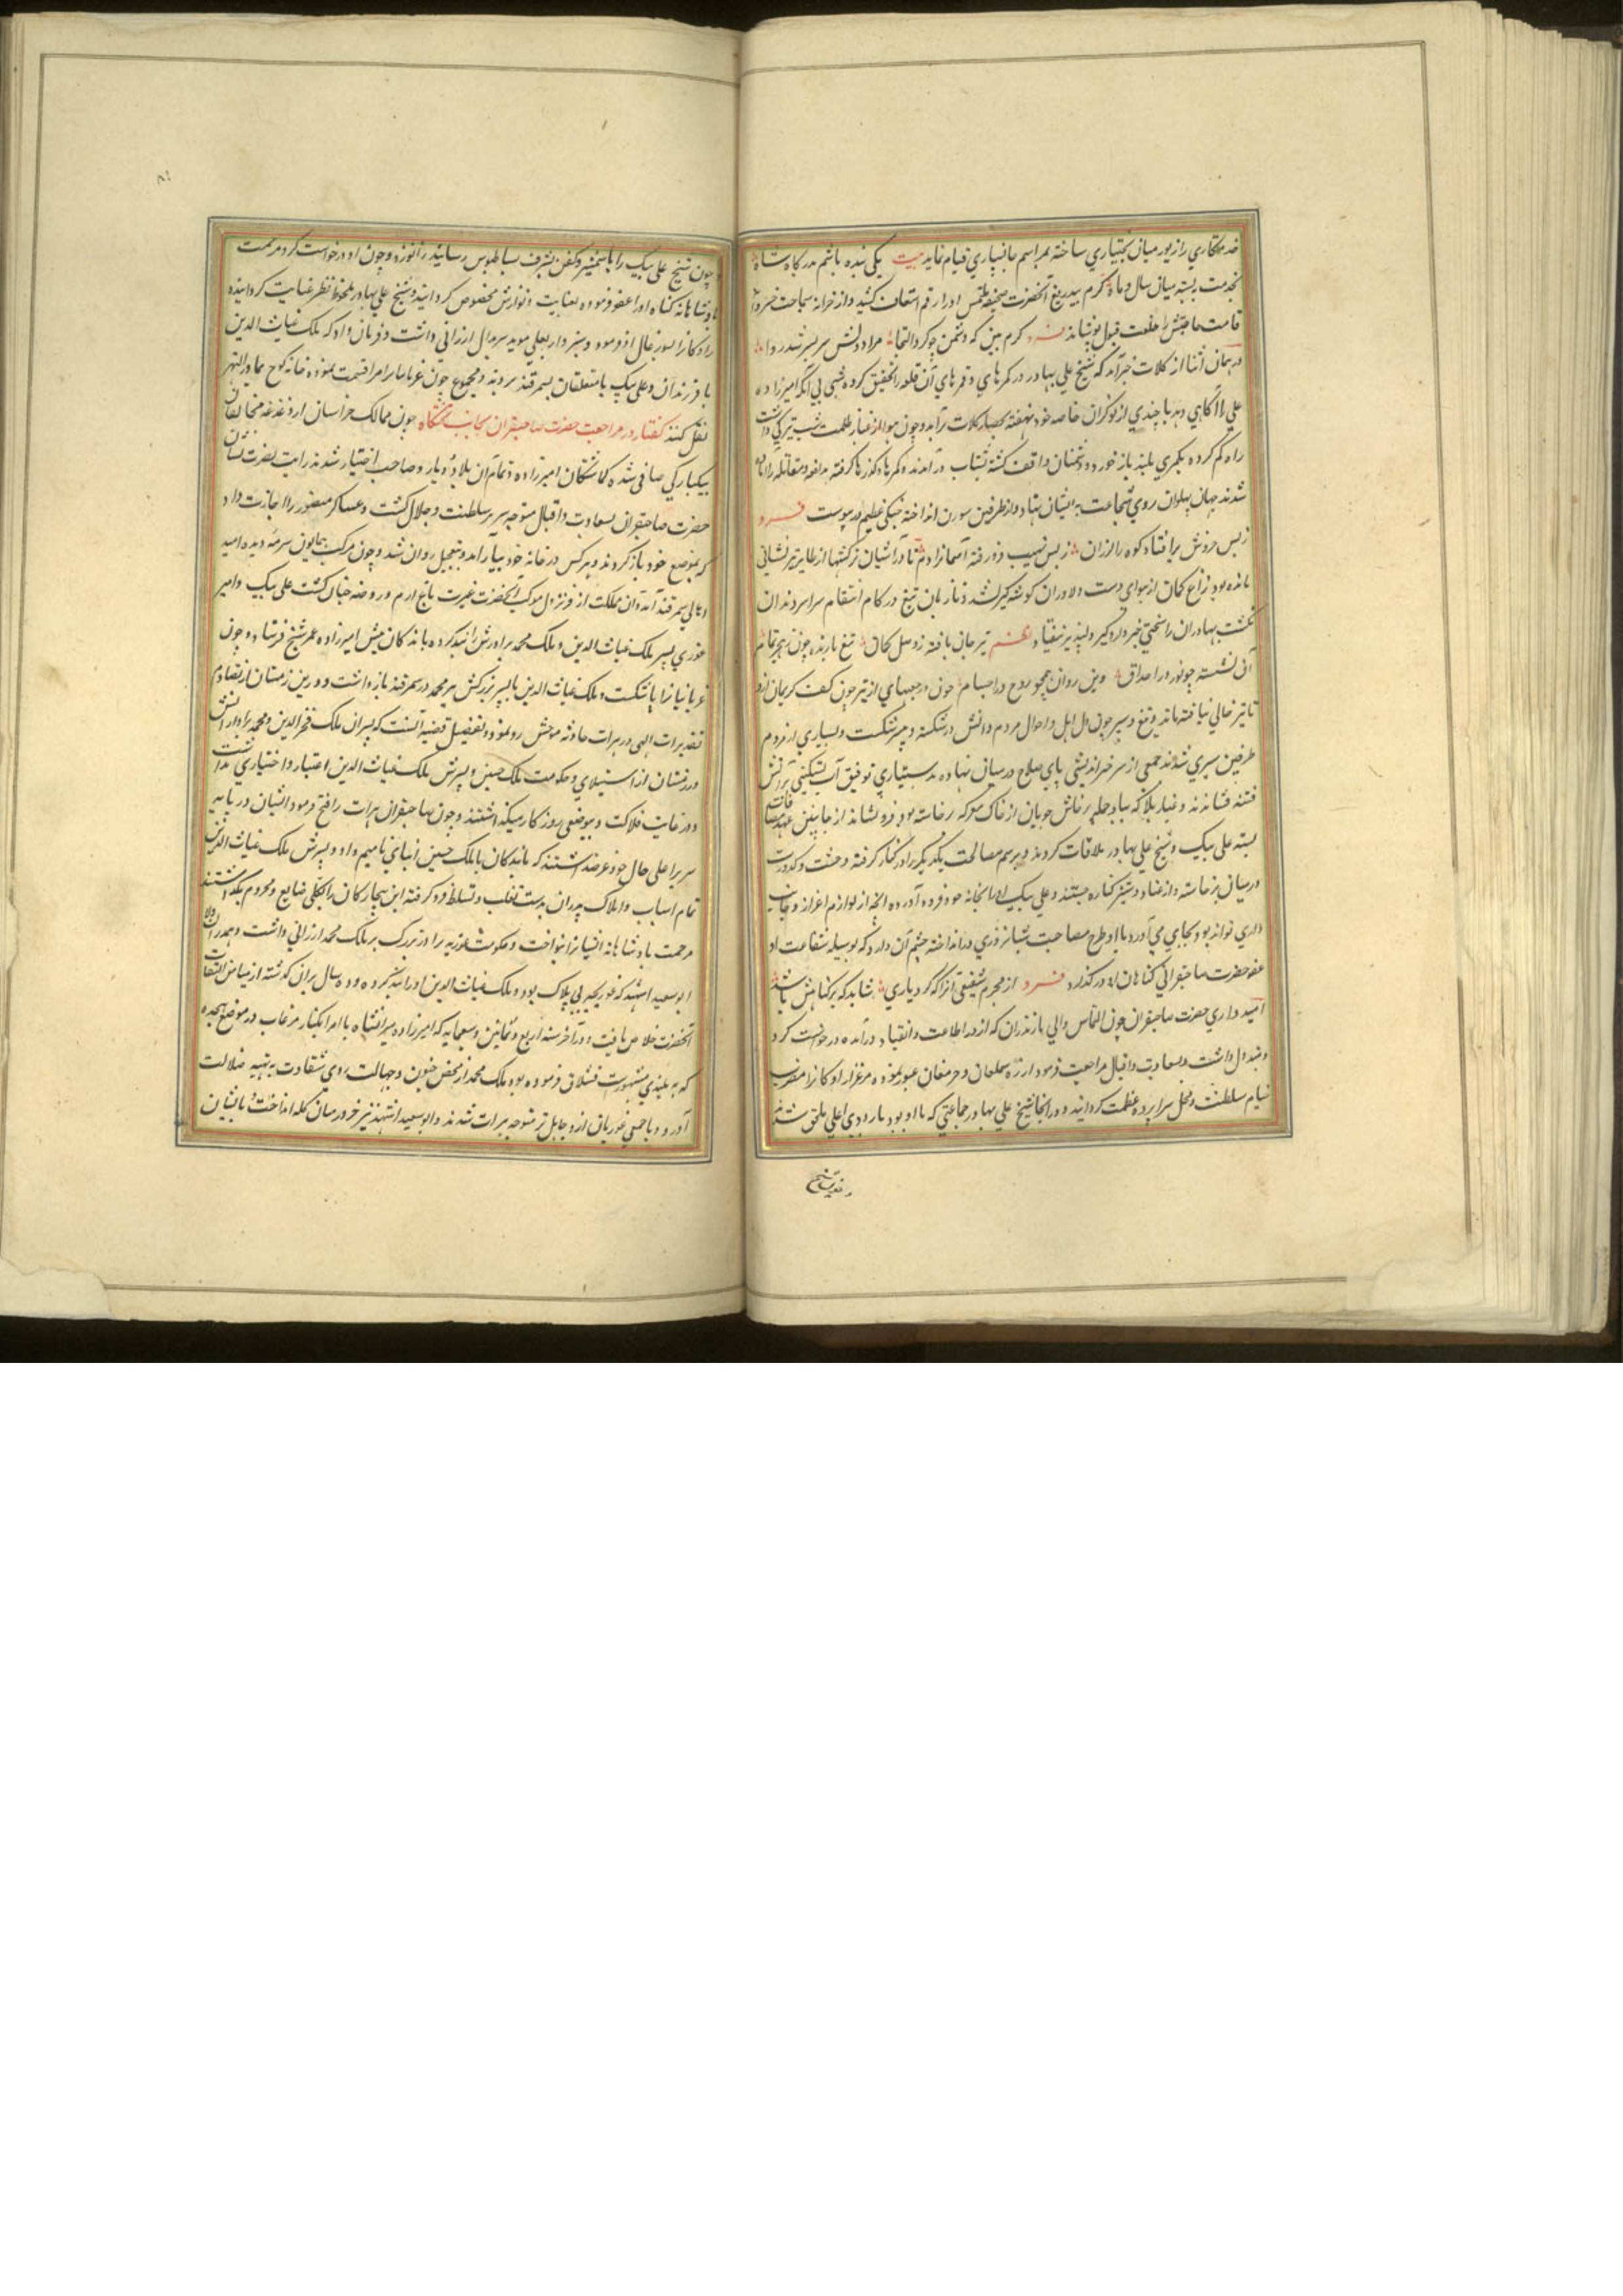 خدمتکاري را زیور میان بختیاري ساخته بمراسم جانسپاري قیام نماید بیت یکي بنده باشم بدرگاه شاه
بخدمت بسته میان سال و ماه کرم بیدریغ آنحضرت صحیفه ملتمس او را رقم اسعاف کشید و از خزانه سماحت خسروانه
قامت حاجتش را خلعت قبول پوشانید فرد کرم بین که دشمن چو کرد التجا مراد دلش سر بسر شد روا
در همان اثنا از کلات خبر آمد که شیخ علي بهادر در کمرهاي و قمرهاي آن قلعه را تحقیق کرده شبي بي آنکه امیرزاده
علي را آگاهي دهد با چندي از نوکران خاصه خود نهفته بحصار کلات برآمد و چون هوا از غبار ظلمت شب تیرگي داشت
راه گم کرده بکمري بلند باز خورد و دشمنان واقف گشته بشتاب در آمدند و کمرها و گذرها گرفته مدافعه و مقاتله را آماده
شدند جهان پهلوان روي شجاعت به ایشان نهاد و از طرفین سورن انداخته جنگي عظیم در پیوست فرد
ز بس خروش برافتاد کوه را لرزان ز بس نهیب فرو رفته آسمانرا دم تا در آشیان ترکشها از طایر تیر نشاني
مانده بود زاغ کمان از هواي دست دلاوران گوشه گیر نشد و تا زبان تیغ در کام انتقام سراسر دندان
نگشت بهادران را سختي خبر دار و گیر دلپذیر نیفتاد نظم تیر جان یافته ز وصل کمان تیغ بارنده چون هجر تمام
آن نشسته چو نور در احداق وین روان همچو روح در اجسام چون جعبهاي از تیر چون کف کریمان از
تا تیر خالي نیافته ماند و تیغ و سپر چون دل اهل و احوال مردم دانش درشکسته و پیر شکست و بسیاري از مردم
طرفین سپري شدند جمعي از سر خیراندیشي پاي صلح در میان نهاده بدستیاري توفیق آب تسکیني بر آتش
فتنه فشاندند و غبار بلا که بباد حمله پرخاش جویان از خاک معرکه برخاسته بود فرو نشاند از جانبین عهد مصافات
بسته علي بیک و شیخ علي بهادر ملاقات کردند و برسم مصالحت یکدیگر را در کنار گرفته وحشت و کدورت
از میان برخاسته و از عناد و ستیز کناره جستند و علي بیک او را بخانه خود فرود آورده آنچه از لوازم اعزاز و جانب
داري تواند بود بجاي مي آورد با او طرح مصاحبت شبانروزي در انداخته چشم آن دارد که بوسیله شفاعت او
عفو حضرت صاحبقراني گناهان او در گذارد فرد از مجرم شفیعي آنرا که کرد یاري شاید که بر گناهش باشد
امیدواري حضرت صاحبقران چون التماس والي مازندران که از در اطاعت و انقیاد در آمده درخواست کرد
مبذول داشت و بسعادت و اقبال مراجعت فرمود از راه سملغان و جرمغان عبور نموده مرغزار رادکانرا مضرب
خیام سلطنت و محل سراپرده عظمت گردانید و در آنجا شیخ علي بهادر جماعتي که با او بود باردوي اعلي ملحق شدند
و چون شیخ
و چون شیخ علي بیک را با شمشیر و کفن بشرف بساط بوس رسانید زانو زد و چون او درخواست کرد مرحمت
پادشاهانه گناه او را عفو فرموده بعنایت و نوازش مخصوص گردانید و شیخ علي بهادر ملحوظ نظر عنایت گردانیده
رادکانرا سورغال او فرمود و سبزوار بعلي موید سربدال ارزاني داشت و فرمان داد که ملک غیاث الدین
با فرزندان و علي بیک با متعلقان بسمرقند بردند و مجموع جون غربانیانرا امرا قسمت نموده خانه کوچ بماورالنهر
نقل کنند گفتار در مراجعت حضرت صاحبقران بجانب تختگاه چون ممالک خراسان از دغدغه مخالفان
بیکبارگي صافي شده گماشتگان امیرزاده و تمام آن بلاد و دیار و صاحب اختیار شدند رایت نصرت نشان
حضرت صاحبقران بسعادت و اقبال متوجه سریر سلطنت و جلال گشت و عساکر منصور را اجازت داد
که بموضع خود باز گردند و هر کس در خانه خود بیارامد و بتعجیل روان شد و چون مرکب همایون سرمه دیده امید
اهالي سمرقند آمد آن مملکت از فر نزول موکب آنحضرت غیرت باغ ارم و روضه جنان گشت علي بیک و امیر
غوري پسر ملک غیاث الدین و ملک محمد برادرش را بند کرده باندکان پیش امیرزاده عمر شیخ فرستاد و چون
غربانیانرا بتاشکنت و ملک غیاث الدین با پسر بزرگش پیر محمد در سمرقند باز داشت و درین زمستان از تصادم
تقدیرات الهي در هرات حادثه موحش رو نمود و تفصیل قضیه آنست که پسران ملک فخر الدین و محمد برادر آتش
در زمان از استیلاي و حکومت ملک حسین و پسرش ملک غیاث الدین اعتبار و اختیاري نداشتند
و در غایت فلاکت و بیوقعي روزگار میگذاشتند و چون صاحبقران هرات را فتح فرمود ایشان در پایه
سریر اعلي حال خود عرضه داشتند که ما بندگان با ملک حسین ابناي تامیم و او و پسرش ملک غیاث الدین
تمام اسباب و املاک پدران بدست تغلب و تسلط فرو گرفته این بیچارگان را بکلي ضایع و محروم بگذاشتند
مرحمت پادشاهانه ایشانرا بنواخت و حکومت غور به برادر بزرگ بر ملک محمد ارزاني داشت و همدران ولا
ابو سعید اسپهبد که غوریچه بي باک بود و ملک غیاث الدین او را بند کرده و ده سال بران گذشته از میامن التفات
آنحضرت خلاص یافت و در آخر سنه اربع و ثمانین و سبعمایه که امیرزاده میرانشاه با امرا بکنار مرغاب در موضع پنجده
که به بلندي مشهورست قشلاق فرموده بود ملک محمد از محض جنون و جهالت روي شقاوت به تیه ضلالت
آورد و با جمعي غوریان ازو جاهل تر متوجه هرات شدند و ابو سعید اسپهبد نیز خود در میان کله انداخت و بایشان